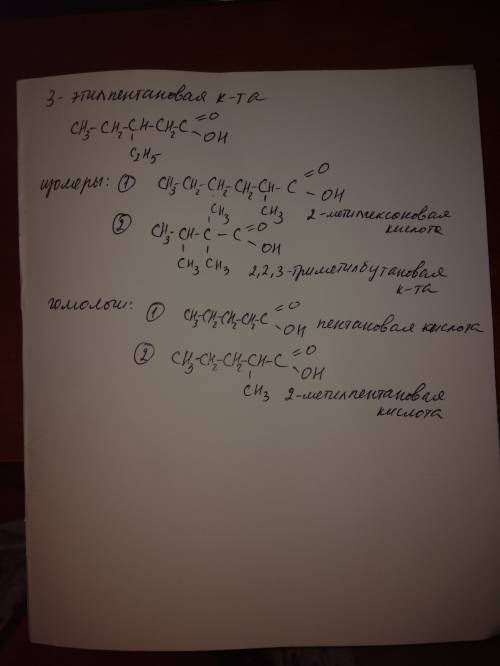 3-этилпентановая к-та
CH₃-CH₂-CH-CH₂-C=O
OH
C₂H₅
изомеры: ① CH₃-CH₂-CH₂-CH₂-CH-C=O
OH
CH₃ 2-метилгексоновая
кислота
② CH₃
CH₃-CH-C-C=O
OH
CH₃ CH₃ 2,2,3-триметилбутановая
к-та
гомологи: ① CH₃-CH₂-CH₂-CH₂-C=O
OH пентановая кислота
② CH₃-CH₂-CH₂-CH-C=O
OH
CH₃ 2-метилпентановая
кислота